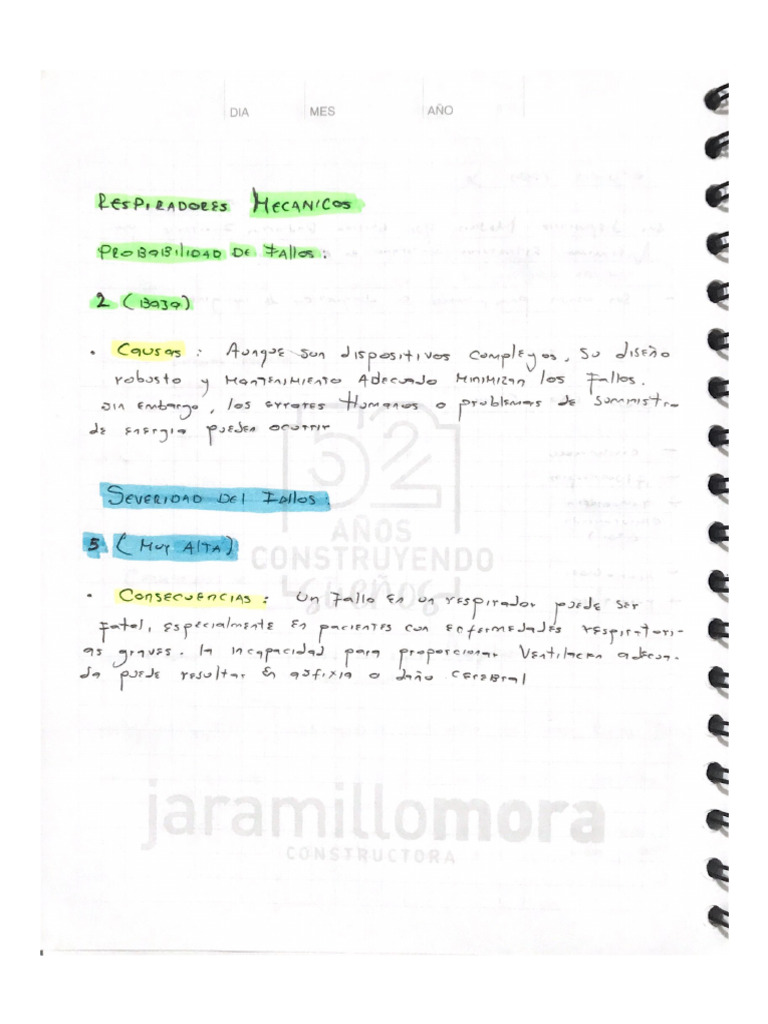 DIA MES AÑO
RESPIRADORES MECANICOS
PROBABILIDAD DE FALLOS:
2 (BAJA)
• CAUSAS: AUNQUE SON DISPOSITIVOS COMPLEJOS, SU DISEÑO
ROBUSTO Y MANTENIMIENTO ADECUADO MINIMIZAN LOS FALLOS.
SIN EMBARGO, LOS ERRORES HUMANOS O PROBLEMAS DE SUMINISTRO
DE ENERGIA PUEDEN OCURRIR
SEVERIDAD DEL FALLOS:
5 (MUY ALTA)
52
AÑOS
CONSTRUYENDO
sueños
• CONSECUENCIAS: UN FALLO EN UN RESPIRADOR PUEDE SER
FATAL, ESPECIALMENTE EN PACIENTES CON ENFERMEDADES RESPIRATORI-
AS GRAVES. LA INCAPACIDAD PARA PROPORCIONAR VENTILACION ADECUA-
DA PUEDE RESULTAR EN ASFIXIA O DAÑO CEREBRAL
jaramillomora
CONSTRUCTORA